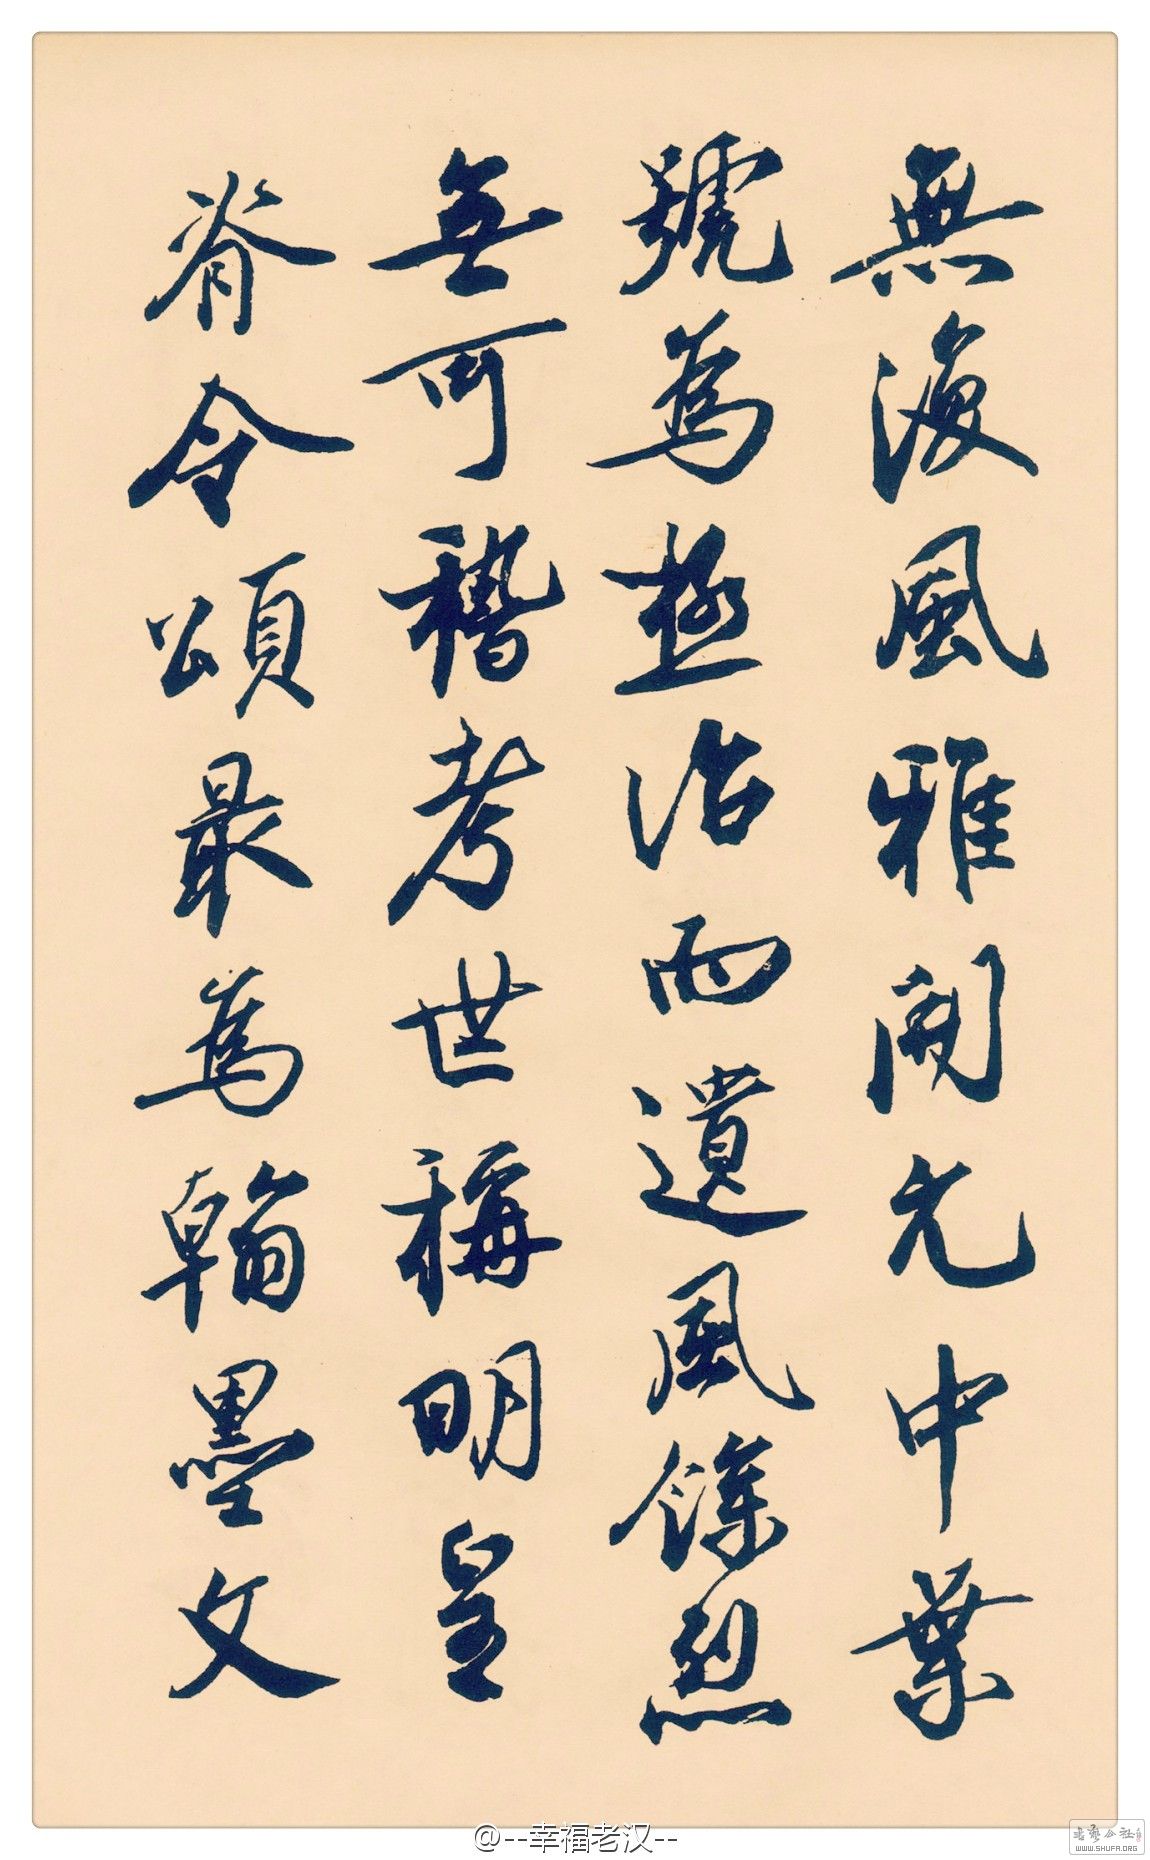 無復風雅開元中業
號為極治而遺風餘烈
無可稽考世稱明皇
脊令頌最為翰墨文
@--幸福老汉--
书艺公社
WWW.SHUFA.ORG